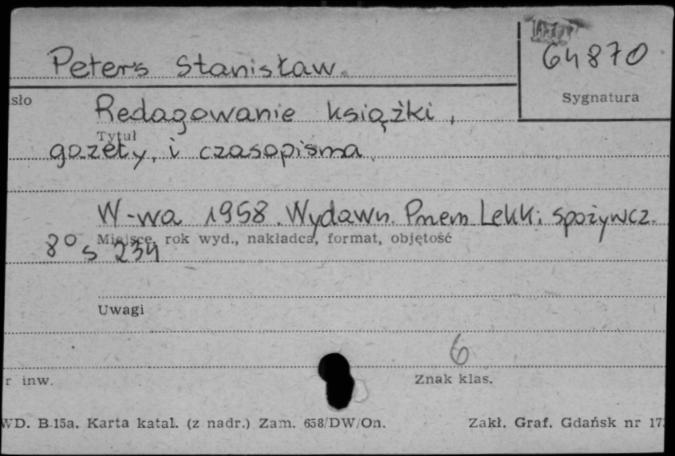 64870
Peters Stanisław.
Sygnatura
sło
Redagowanie książki,
Tytuł
gazety, i czasopisma
W-wa 1958. Wydawn. Przem. Lekk. i spożywcz.
Miejsce, rok wyd., nakładca, format, objętość
8° s 234
Uwagi
6
r inw.
Znak klas.
WD. B-15a. Karta katal. (z nadr.) Zam. 658/DW/On.
Zakł. Graf. Gdańsk nr 17